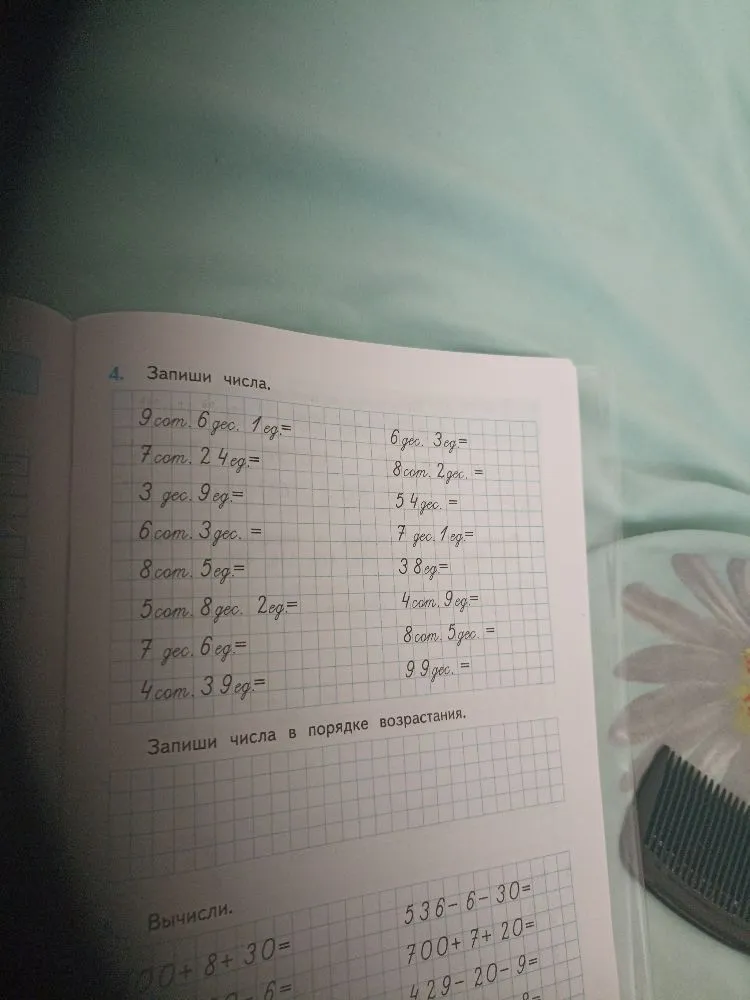 4. Запиши числа.
9 сот. 6 дес. 1 ед.=
7 сот. 2 4 ед.=
3 дес. 9 ед.=
6 сот. 3 дес. =
8 сот. 5 ед.=
5 сот. 8 дес. 2 ед.=
7 дес. 6 ед.=
4 сот. 3 9 ед.=
6 дес. 3 ед.=
8 сот. 2 дес. =
5 4 дес. =
7 дес. 1 ед.=
3 8 ед.=
4 сот. 9 ед.=
8 сот. 5 дес. =
9 9 дес. =
Запиши числа в порядке возрастания.
Вычисли.
00+ 8+ 30=
6=
536- 6- 30=
700+ 7+ 20=
429- 20- 9=